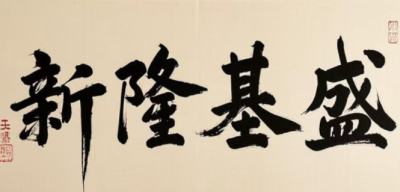 盛基隆新